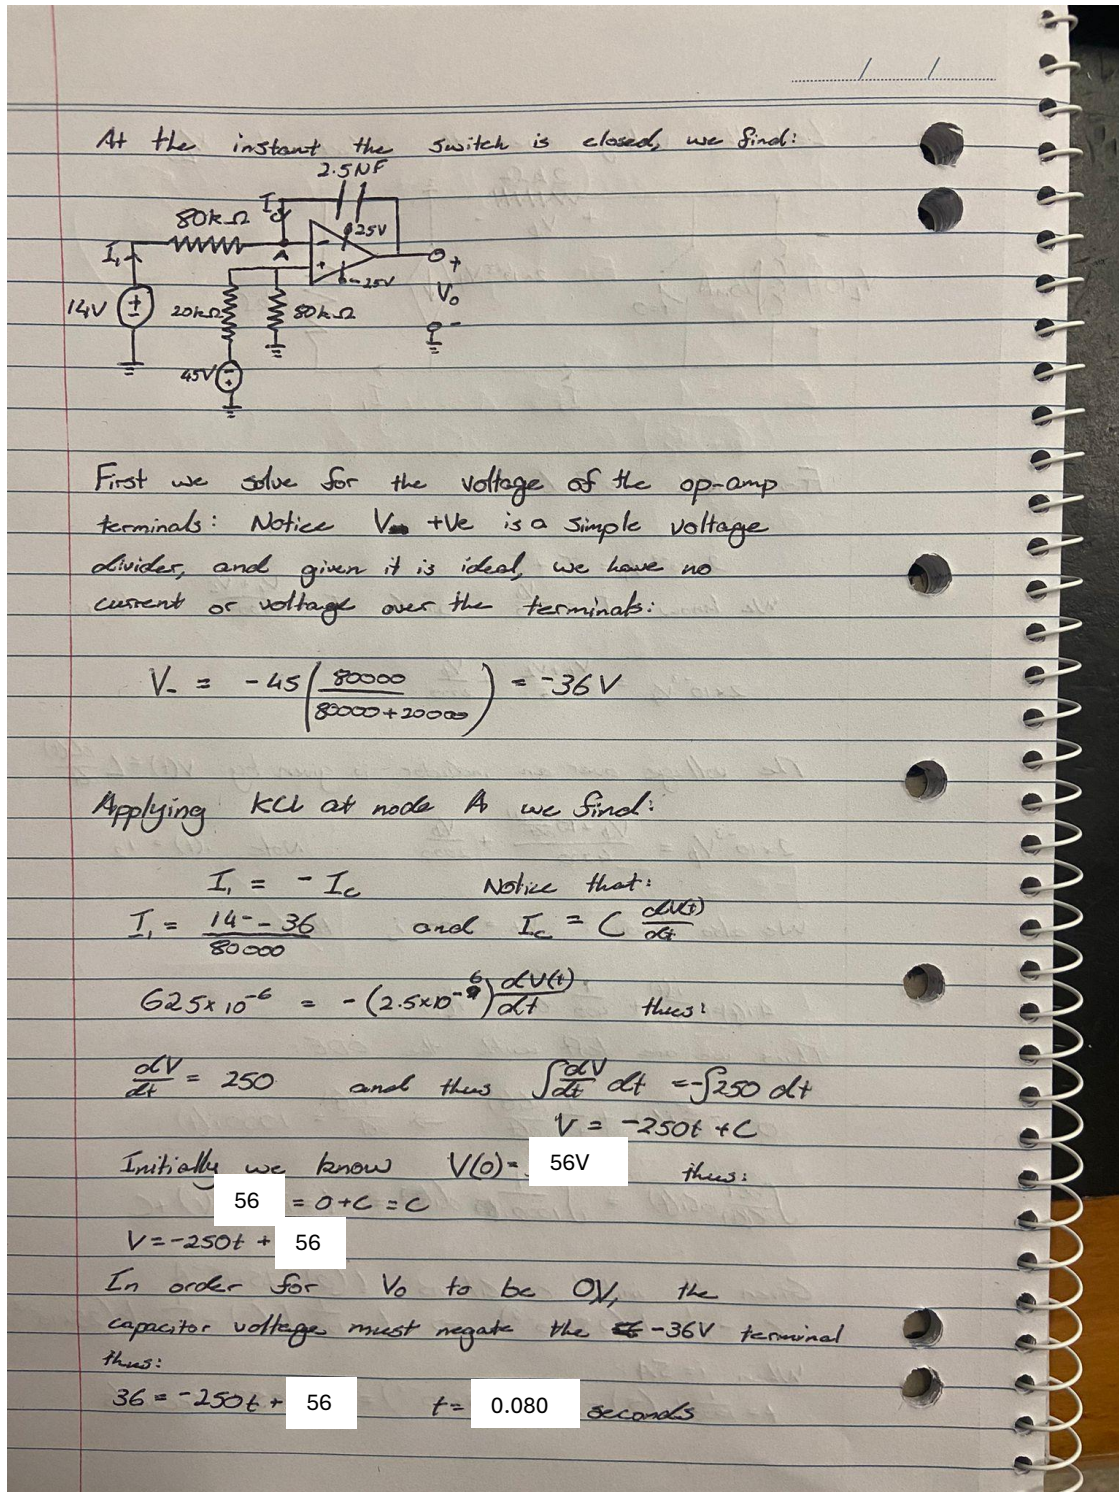 / /
At the instant the switch is closed, we find:
2.5NF
80kΩ
Ic
25V
I₁
A
-
+
-25V
+
Vo
-
14V
+
-
20kΩ
80kΩ
45V
-
+
First we solve for the voltage of the op-amp
terminals: Notice V +Ve is a simple voltage
divider, and given it is ideal, we have no
current or voltage over the terminals:
V₋ = -45(80000/(80000+20000)) = -36V
Applying KCL at node A we find:
I₁ = -Ic Notice that:
I₁ = (14--36)/80000 and Ic = C dV(t)/dt
625×10⁻⁶ = -(2.5×10⁻⁶)dV(t)/dt thus:
dV/dt = 250 and thus ∫dV/dt dt = -∫250 dt
V = -250t + C
Initially we know V(0)= 56V thus:
56 = 0+C = C
V = -250t + 56
In order for Vo to be 0V, the
capacitor voltage must negate the -36V terminal
thus:
36 = -250t + 56 t= 0.080 seconds